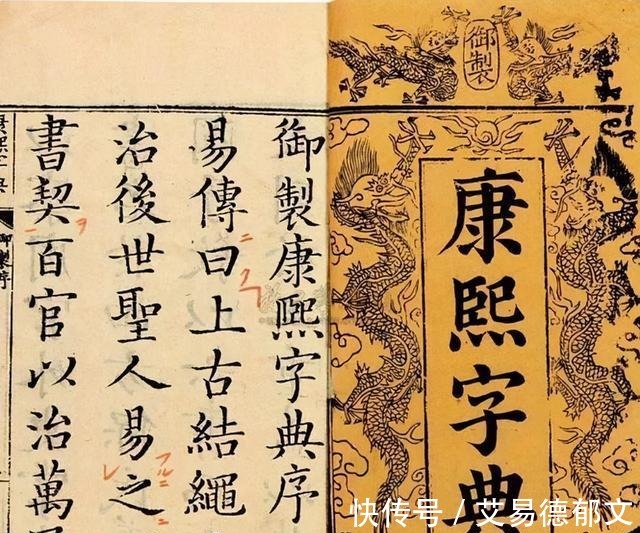 御製
康熙字典
御製康熙字典序
易傳曰上古結繩
治後世聖人易之
書契百官以治萬
御製序
快传号 / 艾易德郁文